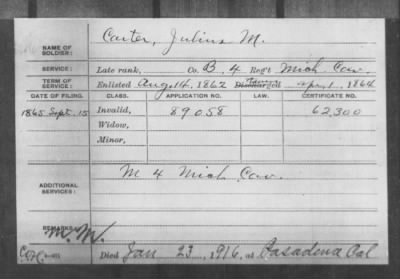 NAME OF SOLDIER: Carter, Julius M.
SERVICE: Late rank, Co. B, 4 Reg't Mich Cav.
TERM OF SERVICE: Enlisted Aug. 14, 1862 Discharged Apr. 1, 1864
DATE OF FILING. CLASS. APPLICATION NO. LAW. CERTIFICATE NO.
1865 Sept. 15 Invalid, 89058 62,300
Widow,
Minor,
ADDITIONAL SERVICES: M 4 Mich Cav.
REMARKS: M. M.
Died Jan 23, 1916, at Pasadena Cal